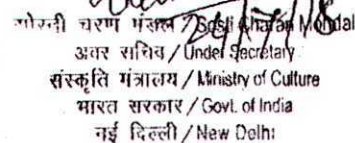 गोस्ती चरण मंडल / Gosti Charan Mondal
अवर सचिव / Under Secretary
संस्कृति मंत्रालय / Ministry of Culture
भारत सरकार / Govt. of India
नई दिल्ली / New Delhi